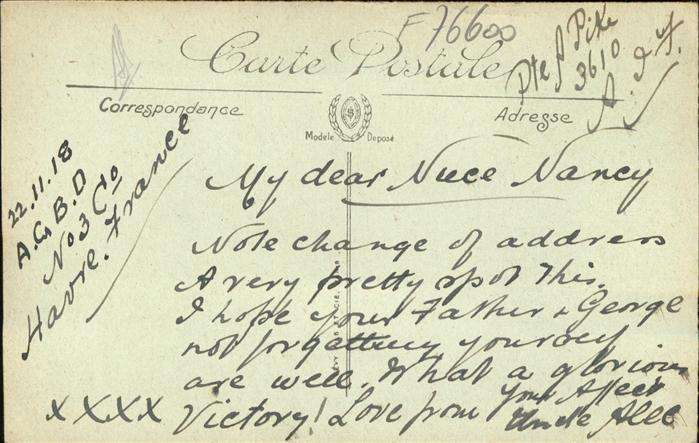 F 76600
Pte A Pike
3610
A.I.F.
Carte Postale
Correspondance
Adresse
Modèle Déposé
22.11.18
A.G.B.D
No 3 Co
Havre. France
My dear Niece Nancy
Note change of address
A very pretty spot this.
I hope your Father & George
not forgetting yourself
are well. What a glorious
Victory! Love from your Affect
Uncle Alec
XXXX